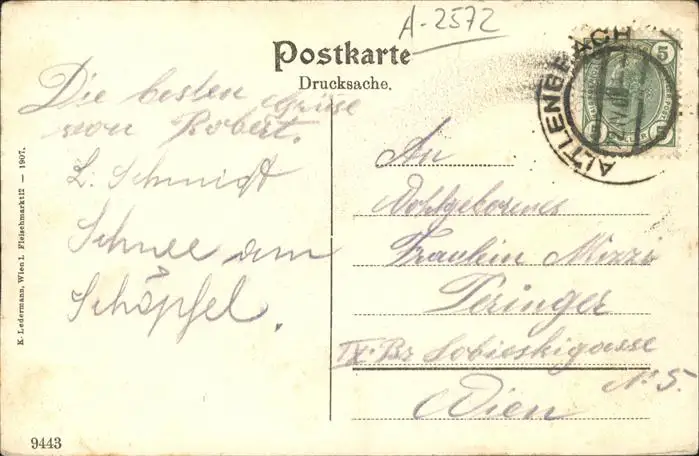 A-2572
Postkarte
Drucksache.
ALTLENGBACH
5
Die besten Grüsse
von Robert.
L. Schmidt
Schnee am
Schöpfel.
An
Wohlgeborenes
Fräulein Mizzi
Peringer
IX. Bz Sobieskigasse
No 5.
Wien
K. Ledermann, Wien I. Fleischmarkt 12 — 1907.
9443